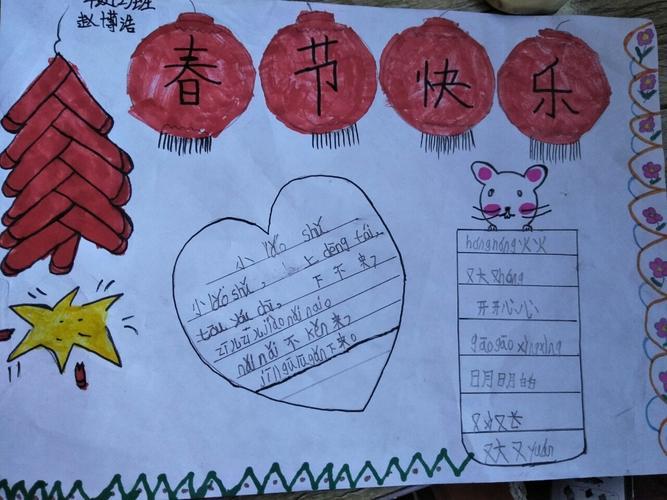 赵博浩
春节快乐
小 lǎo shǔ
小 lǎo shǔ , 上 dēng tái,
tōu yóu chī, 下 不 来,
zī zī zī jiào nǎi nai。
nǎi nǎi 不 kěn 来,
jī lī gū lū gǔn 下来。
hóng hóng 火火
又大又 hóng
开开心心
gāo gāo xìng xìng
日月日月的
又小又长
又大又 yuán